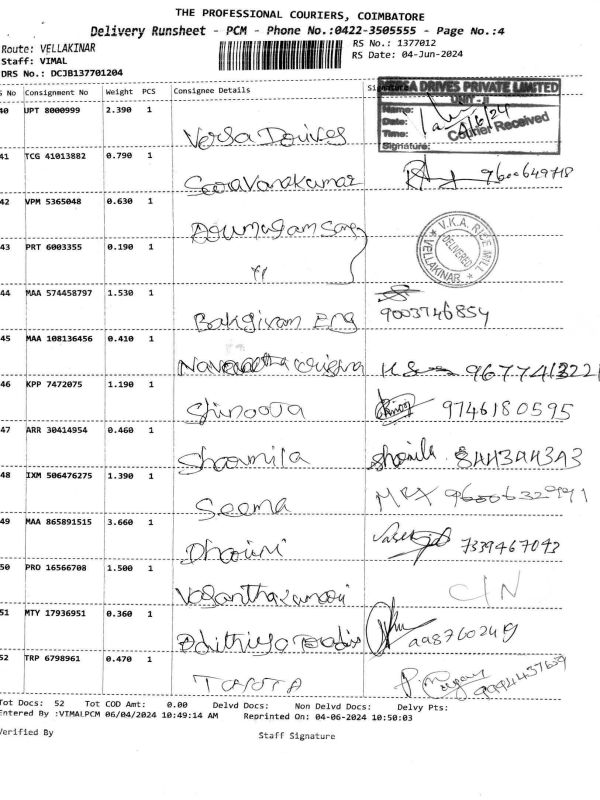 THE PROFESSIONAL COURIERS, COIMBATORE
Delivery Runsheet - PCM - Phone No.:0422-3505555 - Page No.:4
Route: VELLAKINAR
RS No.: 1377012
Staff: VIMAL
RS Date: 04-Jun-2024
DRS No.: DCJB137701204
S No Consignment No Weight PCS Consignee Details Signature
DRIVES PRIVATE LIMITED
UNIT - II
Name:
Date:
Time:
Courier Received
Signature:
40 JPT 8000999 2.390 1 Versa Drives
41 TCG 41013882 0.790 1 Saravanakumar 9600649718
42 VPM 5365048 0.630 1
V.K.A. RICE MILL
DELIVERED
VELLAKINAR
43 PRT 6003355 0.190 1 "
44 MAA 574458797 1.530 1 Eng 9003746854
45 MAA 108136456 0.410 1
46 KPP 7472075 1.190 1 9746180595
47 ARR 30414954 0.460 1 Sharmila
48 IXM 506476275 1.390 1 Seema
49 MAA 865891515 3.660 1 Dharini 7339467042
50 PRO 16566708 1.500 1 Vasanthakumari
51 MTY 17936951 0.360 1
52 TRP 6798961 0.470 1 TOYOTA
Tot Docs: 52 Tot COD Amt: 0.00 Delvd Docs: Non Delvd Docs: Delvy Pts:
Entered By :VIMALPCM 06/04/2024 10:49:14 AM Reprinted On: 04-06-2024 10:50:03
Verified By Staff Signature